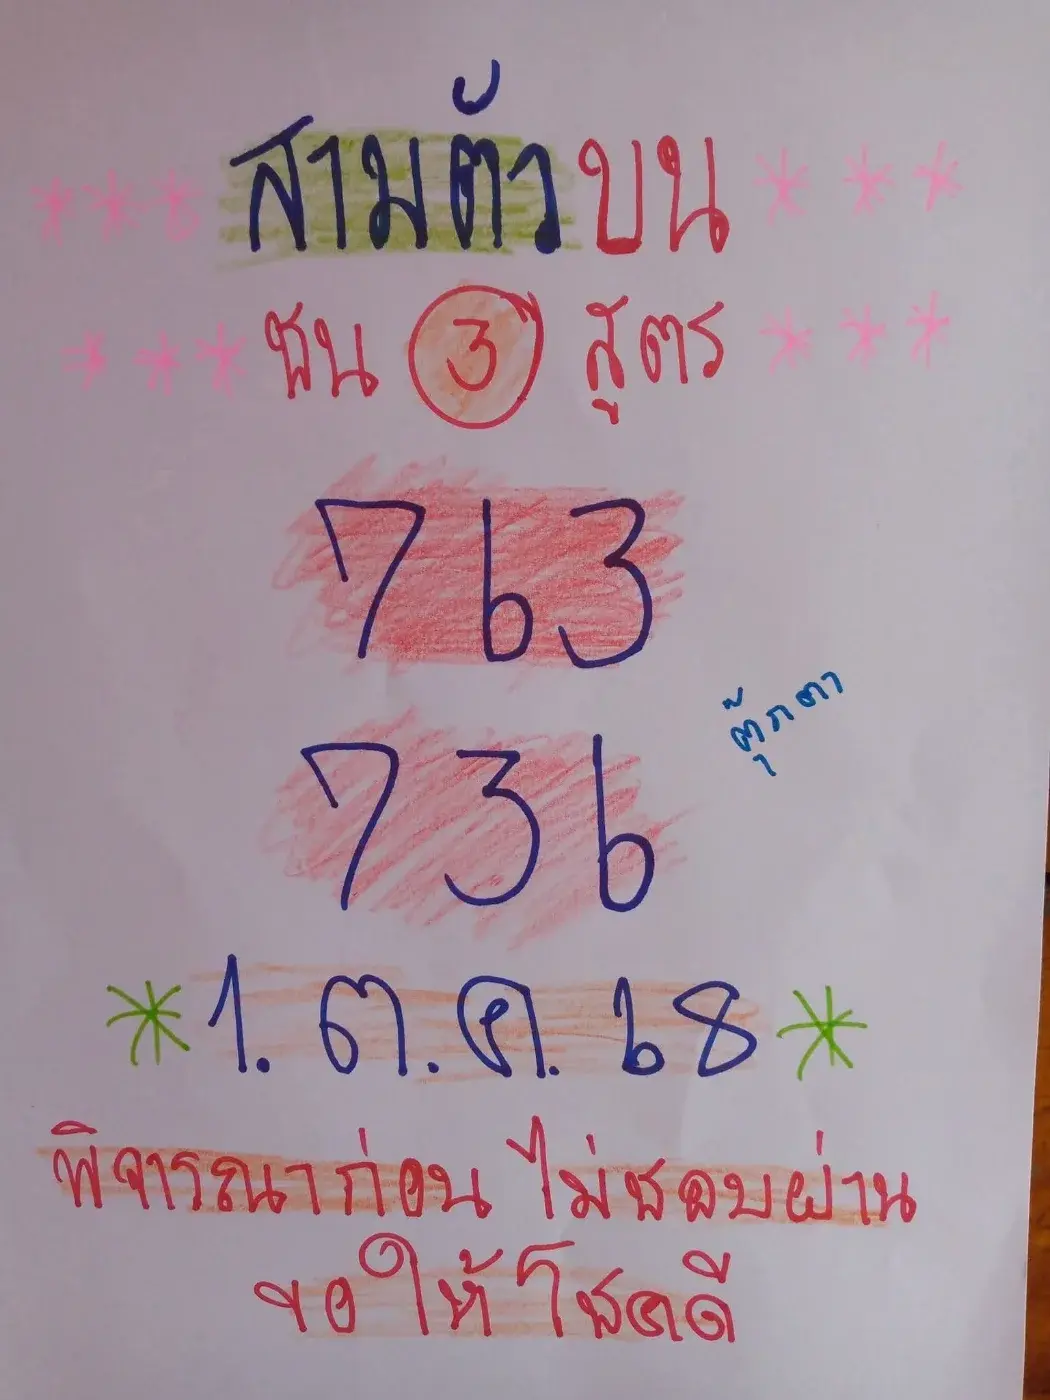 สามตัวบน
ชน 3 สูตร
763
736
ตุ๊กตา
1. ต.ค. 68
พิจารณาก่อน ไม่ชอบผ่าน
ขอให้โชคดี